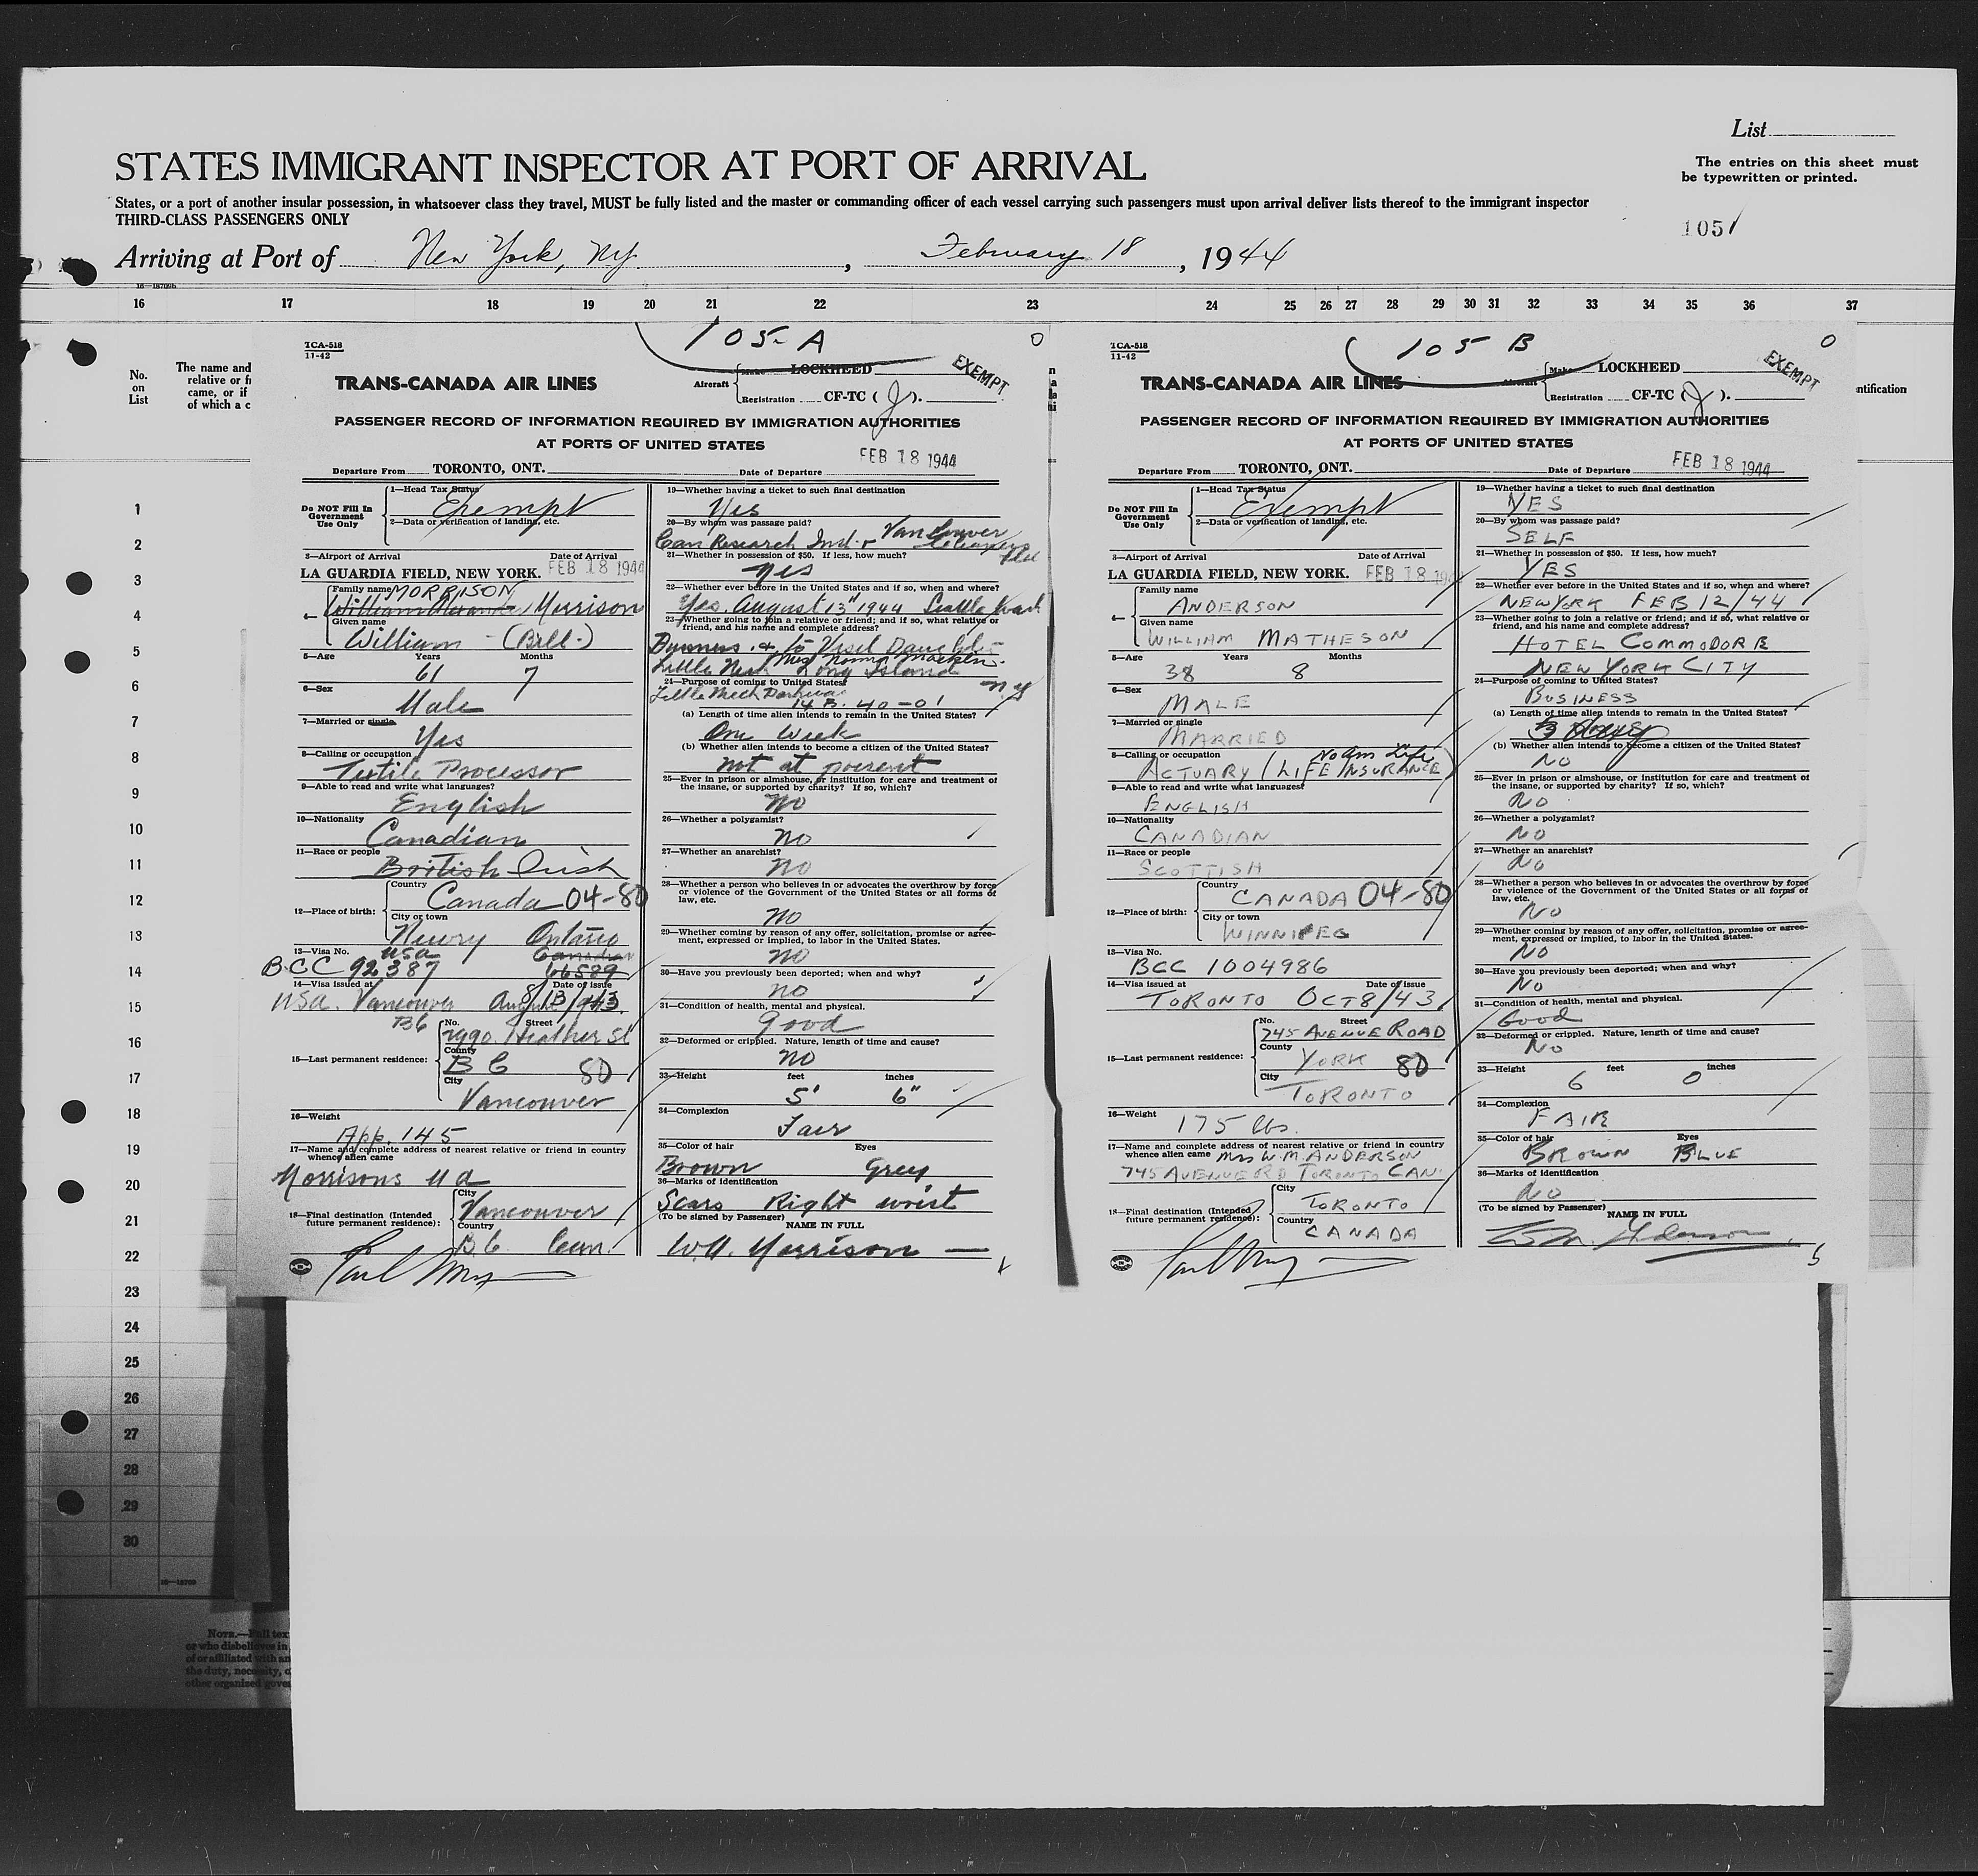 List
STATES IMMIGRANT INSPECTOR AT PORT OF ARRIVAL
The entries on this sheet must
be typewritten or printed.
States, or a port of another insular possession, in whatsoever class they travel, MUST be fully listed and the master or commanding officer of each vessel carrying such passengers must upon arrival deliver lists thereof to the immigrant inspector
THIRD-CLASS PASSENGERS ONLY
1051
Arriving at Port of New York, NY. , February 18 , 1944
16—18709b
16 17 18 19 20 21 22 23 24 25 26 27 28 29 30 31 32 33 34 35 36 37
No.
on
List
The name and
relative or fi
came, or if
of which a c
ntification
1
2
3
4
5
6
7
8
9
10
11
12
13
14
15
16
17
18
19
20
21
22
23
24
25
26
27
28
29
30
16—18709
NOTE.—Full tex
or who disbelieves in
of or affiliated with an
the duty, necessity, o
other organized gove
105-A
TCA-518
11-42
TRANS-CANADA AIR LINES
Aircraft Make LOCKHEED
Registration CF-TC ( J ).
EXEMPT
PASSENGER RECORD OF INFORMATION REQUIRED BY IMMIGRATION AUTHORITIES
AT PORTS OF UNITED STATES
Departure From TORONTO, ONT. Date of Departure FEB 18 1944
Do NOT Fill In
Government
Use Only
1—Head Tax Status
Exempt
2—Data or verification of landing, etc.
3—Airport of Arrival Date of Arrival
LA GUARDIA FIELD, NEW YORK. FEB 18 1944
4— Family name MORRISON
Morrison
Given name
William (Bill)
5—Age Years Months
61 7
6—Sex
Male
7—Married or single
Yes
8—Calling or occupation
Textile Processor
9—Able to read and write what languages?
English
10—Nationality
Canadian
11—Race or people
British Irish
12—Place of birth: Country
Canada 04-80
City or town
Newry Ontario
13—Visa No. USA Canadian
BCC 92387 66589
14—Visa issued at Date of issue
USA. Vancouver August 8/13/943
BC
15—Last permanent residence: No. Street
Heather St
County
B C 80
City
Vancouver
16—Weight
App. 145
17—Name and complete address of nearest relative or friend in country
whence alien came
Morrisons
18—Final destination (Intended
future permanent residence): City
Vancouver
Country
B.C. Can.
19—Whether having a ticket to such final destination
Yes
20—By whom was passage paid?
Can Research Inst. + Vancouver
Cleaners
21—Whether in possession of $50. If less, how much?
Yes
22—Whether ever before in the United States and if so, when and where?
Yes. August 13" 1944 Seattle Wash
23—Whether going to join a relative or friend; and if so, what relative or
friend, and his name and complete address?
Business & to Visit Daughter
Little Neck Long Island N.Y
24—Purpose of coming to United States?
Little Neck Parkway
14 B. 40-01
(a) Length of time alien intends to remain in the United States?
One Week
(b) Whether alien intends to become a citizen of the United States?
not at present
25—Ever in prison or almshouse, or institution for care and treatment of
the insane, or supported by charity? If so, which?
No
26—Whether a polygamist?
No
27—Whether an anarchist?
No
28—Whether a person who believes in or advocates the overthrow by force
or violence of the Government of the United States or all forms of
law, etc.
No
29—Whether coming by reason of any offer, solicitation, promise or agree-
ment, expressed or implied, to labor in the United States.
No
30—Have you previously been deported; when and why?
no
31—Condition of health, mental and physical.
Good
32—Deformed or crippled. Nature, length of time and cause?
no
33—Height feet inches
5' 6"
34—Complexion
Fair
35—Color of hair Eyes
Brown Grey
36—Marks of identification
Scars Right wrist
(To be signed by Passenger) NAME IN FULL
W.A. Morrison
105 B
TCA-518
11-42
TRANS-CANADA AIR LINES
Aircraft Make LOCKHEED
Registration CF-TC ( J ).
EXEMPT
PASSENGER RECORD OF INFORMATION REQUIRED BY IMMIGRATION AUTHORITIES
AT PORTS OF UNITED STATES
Departure From TORONTO, ONT. Date of Departure FEB 18 1944
Do NOT Fill In
Government
Use Only
1—Head Tax Status
Exempt
2—Data or verification of landing, etc.
3—Airport of Arrival Date of Arrival
LA GUARDIA FIELD, NEW YORK. FEB 18 19
4— Family name
ANDERSON
Given name
WILLIAM MATHESON
5—Age Years Months
38 8
6—Sex
MALE
7—Married or single
MARRIED
8—Calling or occupation No Am Life
ACTUARY (LIFE INSURANCE)
9—Able to read and write what languages?
ENGLISH
10—Nationality
CANADIAN
11—Race or people
SCOTTISH
12—Place of birth: Country
CANADA 04-80
City or town
WINNIPEG
13—Visa No.
BCC 1004986
14—Visa issued at Date of issue
TORONTO OCT 8/43
15—Last permanent residence: No. Street
745 AVENUE ROAD
County
YORK 80
City
TORONTO
16—Weight
175 lbs.
17—Name and complete address of nearest relative or friend in country
whence alien came Mrs W. M. ANDERSON
745 AVENUE RD TORONTO CAN.
18—Final destination (Intended
future permanent residence): City
TORONTO
Country
CANADA
19—Whether having a ticket to such final destination
YES
20—By whom was passage paid?
SELF
21—Whether in possession of $50. If less, how much?
YES
22—Whether ever before in the United States and if so, when and where?
NEW YORK FEB 12/44
23—Whether going to join a relative or friend; and if so, what relative or
friend, and his name and complete address?
HOTEL COMMODORE
NEW YORK CITY
24—Purpose of coming to United States?
BUSINESS
(a) Length of time alien intends to remain in the United States?
3 days
(b) Whether alien intends to become a citizen of the United States?
No
25—Ever in prison or almshouse, or institution for care and treatment of
the insane, or supported by charity? If so, which?
No
26—Whether a polygamist?
No
27—Whether an anarchist?
No
28—Whether a person who believes in or advocates the overthrow by force
or violence of the Government of the United States or all forms of
law, etc.
No
29—Whether coming by reason of any offer, solicitation, promise or agree-
ment, expressed or implied, to labor in the United States.
No
30—Have you previously been deported; when and why?
No
31—Condition of health, mental and physical.
Good
32—Deformed or crippled. Nature, length of time and cause?
No
33—Height feet inches
6 0
34—Complexion
FAIR
35—Color of hair Eyes
BROWN BLUE
36—Marks of identification
No
(To be signed by Passenger) NAME IN FULL
W. M. Anderson